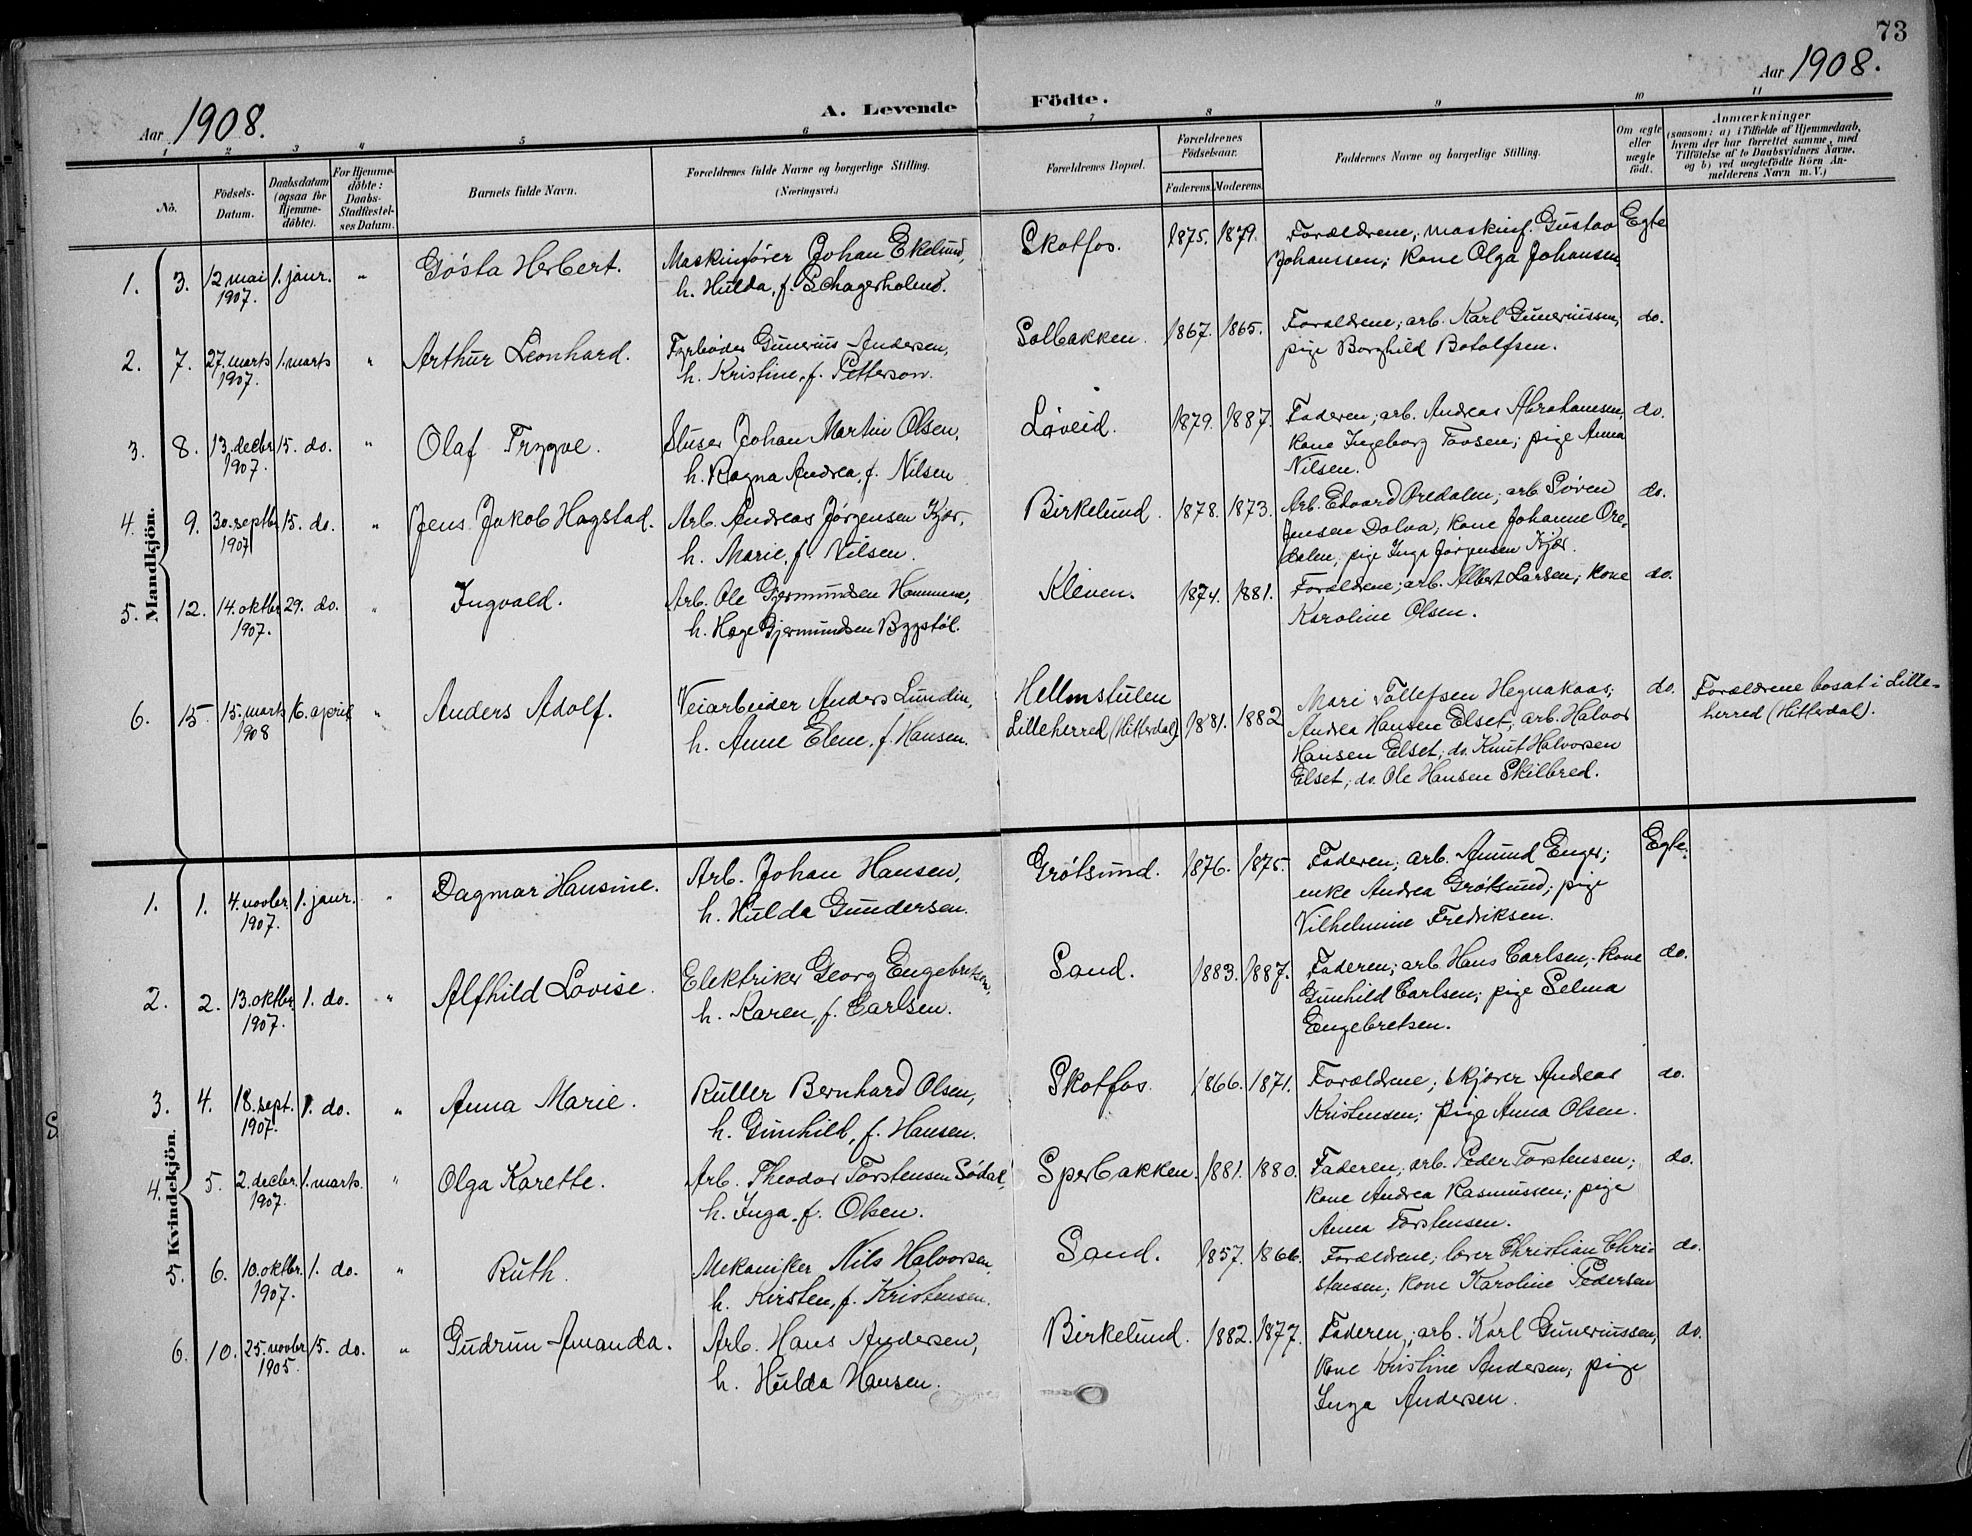 73
Aar 1908. A. Levende Födte. Aar 1908.
1 2 3 4 5 6 7 8 9 10 11
No.
Födsels-
Datum.
Daabsdatum
(ogsaa for
Hjemme-
döbte).
For Hjemme-
döbte:
Daabs-
Stadfæstel-
ses Datum.
Barnets fulde Navn.
Forældrenes fulde Navne og borgerlige Stilling.
(Næringsvei.)
Forældrenes Bopæl.
Forældrenes
Födselsaar.
Faderens. Moderens.
Faddernes Navne og borgerlige Stilling.
Om ægte
eller
uægte
födt.
Anmærkninger
(saasom: a) i Tilfælde af Hjemmedaab,
hvem der har forrettet samme, med
Tilföielse af to Daabsvidners Navne,
og b) ved uægtefödte Börn An-
melderens Navn m. V.)
Mandkjön.
1. 3. 12 mai
1907.
1. janr.
"
Gösta Herbert.
Maskinfører Johan Ekelund,
h. Hulda, f. Schagerholend.
Skotfos.
1875. 1879.
Forældrene; maskinf. Gustav
Johanssen; kone Olga Johansen.
Egte
2. 7. 27. marts
1907.
1. marts
"
Arthur Leonhard.
Fyrbøder Gunerius Andersen,
h. Kristine, f. Petterson.
Solbakken.
1867. 1865.
Forældrene; arb. Karl Gunerussen,
pige Borghild Botolfsen.
do.
3. 8. 13. decbr.
1907.
15. do.
"
Olaf Trygve.
Sluser Johan Martin Olsen,
h. Ragna Andrea, f. Nilsen
Løveid.
1879. 1887.
Faderen; arb. Andreas Abrahamsen,
kone Ingeborg Tovsen; pige Anna
Nilsen.
do.
4. 9. 30. septbr
1907
15. do.
"
Jens Jakob Hagstad.
Arb. Andreas Jørgensen Kjær,
h. Marie, f. Nilsen.
Birkelund.
1878. 1873.
Arb. Edvard Oredalen; arb. Søren
Jensen Dolva; kone Johanne Ore-
dalen; pige Inga Jørgensen Kjær.
do.
5. 12. 14. oktbr
1907.
29. do.
"
Ingvald.
Arb. Ole Gjermundsen Hommene,
h. Hæge Gjermundsen Bygstøl.
Kleven.
1874. 1881.
Forældrene; arb. Albert Larsen; kone
Karoline Olsen.
do.
6. 15. 15. marts
1908
16. april
"
Anders Adolf.
Veiarbeider Anders Lundin,
h. Anne Elene, f. Hansen.
Hellmstulen
Lilleherred (Hitterdal)
1881. 1882
Mari Tollefsen Hegnakaas;
Andrea Hansen Elset; arb. Halvor
Hansen Elset; do. Knut Halvorsen
Elset; do. Ole Hansen Skilbred.
do.
Forældrene bosat i Lille-
herred (Hitterdal).
Kvindekjön.
1. 1. 4. novbr.
1907.
1. janr.
"
Dagmar Hansine.
Arb. Johan Hansen,
h. Hulda Gundersen.
Grøtsund.
1876. 1875.
Faderen; arb. Amund Enger;
enke Andrea Grøtsund; pige
Vilhelmine Fredriksen.
Egte.
2. 2. 13. oktbr.
1907.
1. do.
"
Alfhild Lovise.
Elektriker Georg Engebretsen,
h. Karen, f. Carlsen.
Sand.
1883. 1887.
Faderen; arb. Hans Carlsen; kone
Gunhild Carlsen; pige Selma
Engebretsen.
do.
3. 4. 18. sept.
1907.
1. do.
"
Anna Marie.
Ruller Bernhard Olsen,
h. Gunhild, f. Hansen.
Skotfos
1866. 1871.
Forældrene; skjærer Andreas
Kristensen; pige Anna Olsen.
do.
4. 5. 2. decbr.
1907.
1. marts.
"
Olga Karette.
Arb. Theodor Torstensen Sødal,
h. Inga, f. Olsen.
Sperbakken.
1881. 1880.
Faderen; arb. Peder Torstensen;
kone Andrea Rasmussen; pige
Anna Torstensen.
do.
5. 6. 10. oktbr.
1907.
1. do.
"
Ruth.
Mekaniker Nils Halvorsen,
h. Kirsten, f. Kristensen.
Sand.
1857. 1866.
Forældrene; lærer Christian Chri-
stensen; kone Karoline Pedersen
do.
6. 10. 25. novbr
1905.
15. do.
"
Gudrun Amanda.
Arb. Hans Andersen,
h. Hulda Hansen.
Birkelund.
1882. 1877.
Faderen; arb. Karl Guneriussen,
kone Kristine Andersen; pige
Inga Andersen.
do.